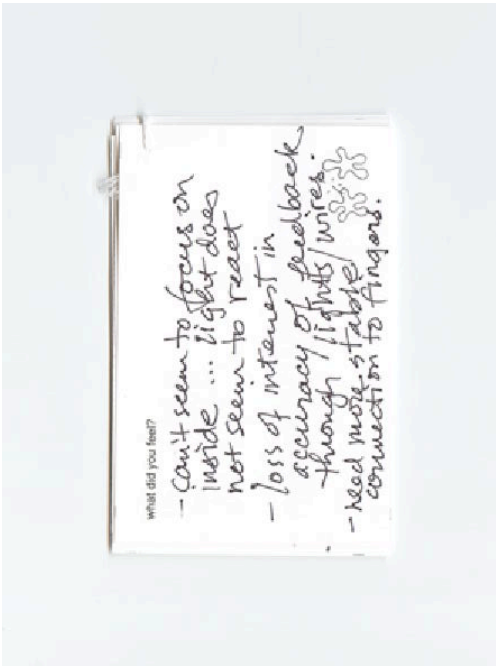 what did you feel?
- can't seem to focus on
inside ... light does
not seem to react
- loss of interest in
accuracy of feedback
through lights/wires.
- need more stable
connection to fingers.